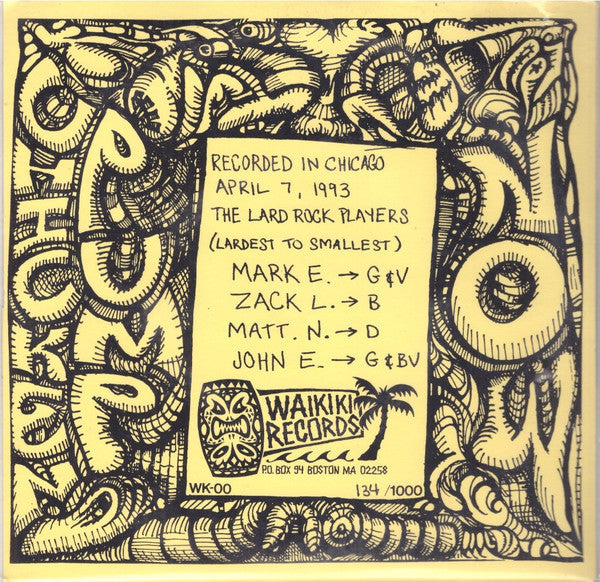 RECORDED IN CHICAGO
APRIL 7, 1993
THE LARD ROCK PLAYERS
(LARDEST TO SMALLEST)
MARK E. → G&V
ZACK L. → B
MATT. N. → D
JOHN E. → G&BV
WAIKIKI
RECORDS
P.O. BOX 94 BOSTON MA 02258
WK-00 134 /1000